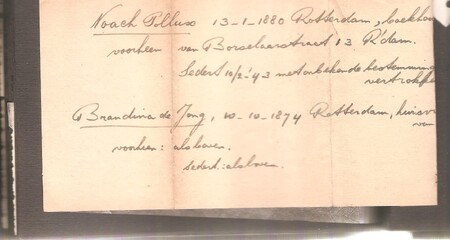 Noach Pollux 13-1-1880 Rotterdam, boekhou
voorheen van Borselaerstraat 13 R'dam.
Sedert 10/2-'43 met onbekende bestemming
vertrokken
Brandina de Jong, 20-10-1874 Rotterdam, huisvr
van
voorheen: alsboven.
sedert: alsboven.